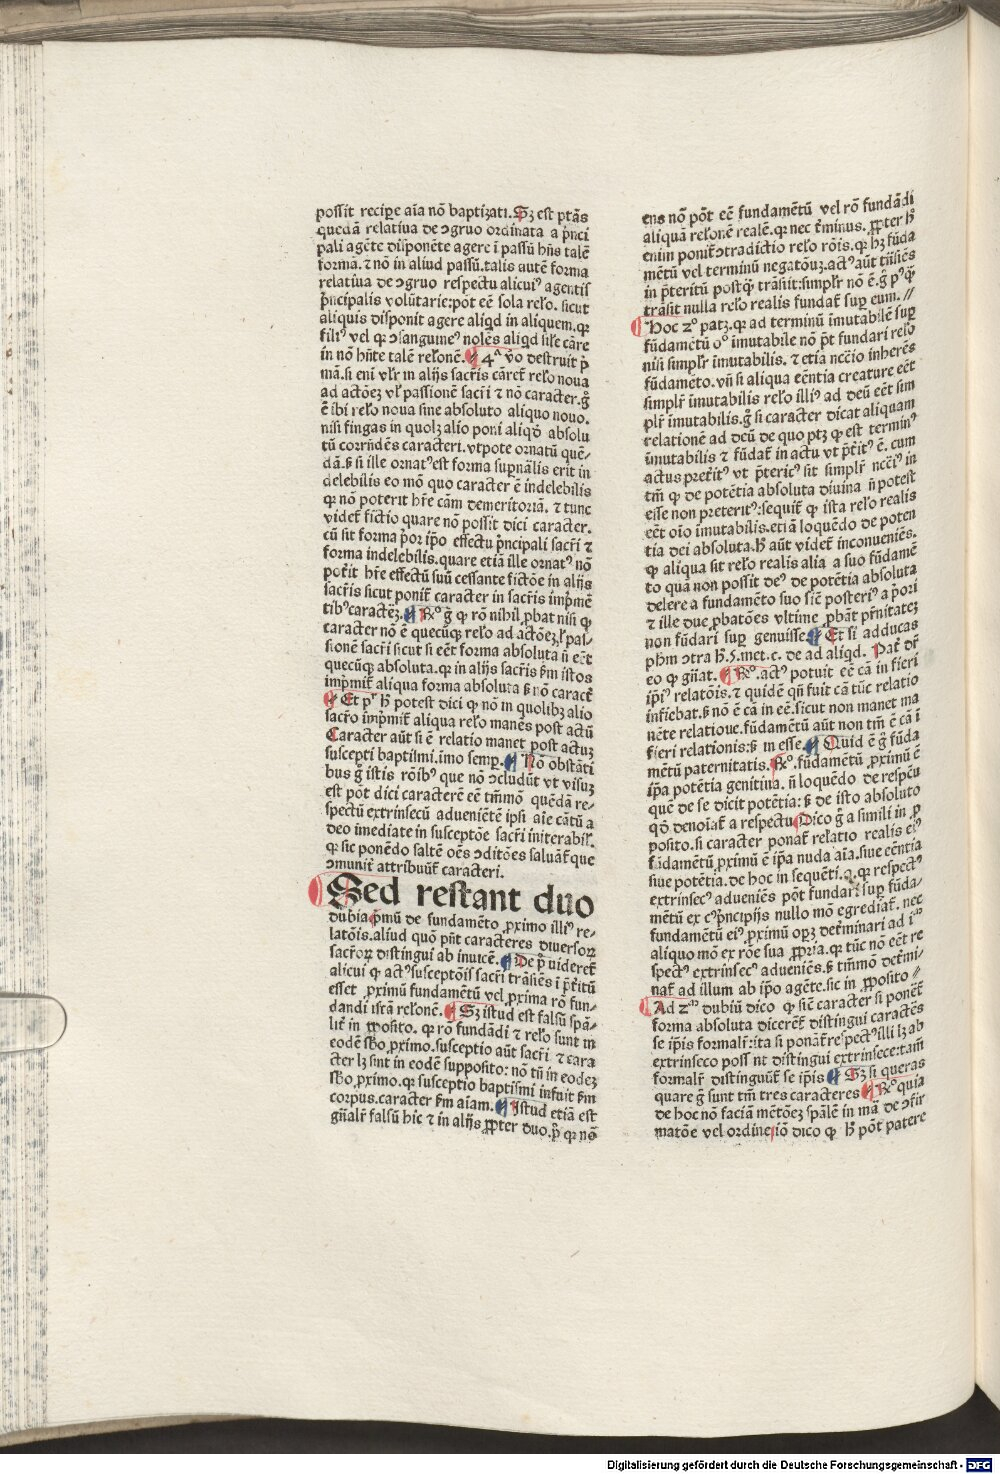 possit recipe aīa nō baptizati. Sꝫ est ptās
quedā relatiua de ↄgruo ordinata a pͥnci
pali agēte disponēte agere ī passū hn̄s talē
formā. ⁊ nō in aliud passū. talis autē forma
relatiua de ↄgruo respectu alicuiꝰ agentis
pͥncipalis volūtarie: pōt eē sola rel'o. sicut
aliquis disponit agere aliqd in aliquem. qꝛ
filiꝰ vel qꝛ ↄsanguineꝰ nolēs aliqd sil'e cāre
in nō hn̄te talē rel'onē. 4ᵃ v̄o destruit p̄
mā. si eni vl'r in alijs sacr̄is cāret̄ rel'o noua
ad actōeꝫ vl' passionē sacr̄i ⁊ nō caracter. g̊
ē ibi rel'o noua sine absoluto aliquo nouo.
nisi fingas in quolꝫ alio poni aliqd̄ absolu
tū corrn̄dēs caracteri. vtpote ornatū quē-
dā. sꝫ si ille ornatꝰ est forma supn̄alis erit in
delebilis eo mō quo caracter ē indelebilis
qꝛ nō poterit hr̄e cām demeritoriā. ⁊ tunc
videt̄ fictio quare nō possit dici caracter.
cū sit forma pͥor ip̄o effectu pͥncipali sacr̄i ⁊
forma indelebilis. quare etiā ille ornatꝰ nō
pot̄it hr̄e effectū suū cessante fictōe in alijs
sacr̄is sicut ponit̄ caracter in sacr̄is imp̄mē
tibꝰ caractēꝫ. ℞ᵒ g̊ ꝙ rō nihil ꝓbat nisi ꝙ
caracter nō ē quecūqꝫ rel'o ad actōeꝫ l' pas-
sionē sacr̄i sicut si eēt forma absoluta ñ eēt
quecūqꝫ absoluta. qꝛ in alijs sacr̄is ẜm istos
imp̄mit̄ aliqua forma absoluta sꝫ nō caract̄
Et pͬ hͦ potest dici ꝙ nō in quolibꝫ alio
sacr̄o imp̄mit̄ aliqua rel'o manēs post actū
Caracter aūt si ē relatio manet post actuꝫ
suscepti baptismi. imo semp. Nō obstāti
bus g̊ istis rōibꝰ que nō ↄcludūt vt visuꝫ
est pōt dici caracterē eē tm̄mō quēdā re-
spectū extrinsecū adueniētē ipsi aīe cātū a
deo imediate in susceptōe sacr̄i initerabil'.
qꝛ sic ponēdo saltē oēs ↄditōes saluāt̄ que
ↄmunit̄ attribuūt̄ caracteri.
Sed restant duo
dubia pͥmū de fundamēto ꝓximo illiꝰ re-
latōis. aliud quō pn̄t caracteres diuersoꝝ
sacr̄oꝝ distingui ab inuicē. De pͦ videret̄
alicui ꝙ actꝰ susceptōis sacr̄i trāsiēs ī pͤt̄itū
esset ꝓximū fundamētū vel ꝓxima rō fun-
dandi istā rel'onē. Sꝫ istud est falsū spā-
lit̄ in ꝓposito. qꝛ rō fundādi ⁊ rel'o sunt in
eodē sb̄o ꝓximo. susceptio aūt sacr̄i ⁊ cara
cter lꝫ sint in eodē supposito: nō tn̄ in eodeꝫ
sb̄o ꝓximo. qꝛ susceptio baptismi infuit ẜm
corpus. caracter ẜm aīam. Istud etiā est
gn̄alr̄ falsū hic ⁊ in alijs ꝓpter duo. pͦ qꝛ nō
ens nō pōt eē fundamētū vel rō fundādi
aliquā rel'onē realē. qꝛ nec t̄minus. ꝓpter hͦ
enim ponit̄ ↄtradictio rel'o rōis. qꝛ hꝫ fūda
mētū vel terminū negatōuꝫ. actꝰ aūt trāsiēs
in pͤteritū postqͣ trāsiit: simplr̄ nō ē. g̊ pꝰqͣ
trāsit nulla rel'o realis fundat̄ sup eum. //
Hoc 2ᵒ patꝫ. qꝛ ad terminū īmutabilē sup
fūdamētū oᵒ imutabile nō pͦt fundari rel'o
nisi simplr̄ īmutabilis. ⁊ etia nccīo inherēs
fūdamēto. vn̄ si aliqua eēntia creature eēt
simplr̄ īmutabilis rel'o illiꝰ ad deū eēt sim
plr̄ imutabilis. g̊ si caracter dicat aliquam
relationē ad deū de quo ptꝫ ꝙ est terminꝰ
īmutabilis ⁊ fūdat̄ in actu vt pͤt̄itꝰ ē. cum
actus pret̄itꝰ vt pͤteritꝰ sit simplr̄ nccīꝰ in
tm̄ ꝙ de potētia absoluta diuina ñ potest
esse non preteritꝰ: sequit̄ ꝙ ista rel'o realis
eēt oīo imutabilis. etiā loquēdo de poten
tia dei absoluta. hͦ aūt videt̄ inconueniēs.
ꝙ aliqua sit rel'o realis alia a suo fūdamē
to quā non possit deꝰ de potētia absoluta
delere a fundamēto suo sic̄ posteriꝰ a pͥori
⁊ ille due ꝓbatōes vltime ꝓbāt pr̄nitateꝫ
non fūdari sup genuisse. Et si adducas
phm̄ ↄtra hͦ. 5. met. c. de ad aliqd. Pat̄ dr̄
eo ꝙ gn̄at. ℞ᵒ. actꝰ potuit eē cā in fieri
ip̄iꝰ relatōis. ⁊ quidē qn̄ fuit cā tūc relatio
infiebat. sꝫ nō ē cā in eē. sicut non manet ma
nēte relatioue. fūdamētū aūt non tm̄ ē cā ī
fieri relationis: sꝫ in esse. Quid ē g̊ fūda
mētū paternitatis. ℞ᵒ. fūdamētū ꝓximū ē
ip̄a potētia genitiua. ñ loquēdo de respcū
quē de se dicit potētia: sꝫ de isto absoluto
qd̄ denoīat̄ a respectu. Dico g̊ a simili in ꝓ
posito. si caracter ponat̄ relatio realis eiꝰ
fūdamētū ꝓximū ē ip̄a nuda aīa. siue eēntia
siue potētia. de hoc in sequēti. q. qꝛ respectꝰ
extrinsecꝰ adueniēs pōt fundari sup fūda-
mētū ex cꝰ pͥncipijs nullo mō egrediat̄. nec
fundamētū eiꝰ ꝓximū opꝫ det̄minari ad iᵐ
aliquo mō ex rōe sua ꝓpria. qꝛ tūc nō eēt re
spectꝰ extrinsecꝰ adueniēs. sꝫ tm̄mō det̄mi-
nat̄ ad illum ab ip̄o agēte. sic in ꝓposito //
Ad 2ᵐ dubiū dico ꝙ sic̄ caracter si ponēt̄
forma absoluta dicerēt̄ distingui caractēs
se ip̄is formalr̄: ita si ponāt̄ respectꝰ illi lꝫ ab
extrinseco poss nt distingui extrinsece: tam̄
formalr̄ distinguūt̄ se ip̄is Sꝫ si queras
quare g̊ sunt tm̄ tres caracteres ℞ᵒ quia
de hoc nō faciā mētōeꝫ spālē in mā de ↄfir
matōe vel ordine iō dico ꝙ hͦ pōt patere
Digitalisierung gefördert durch die Deutsche Forschungsgemeinschaft - DFG